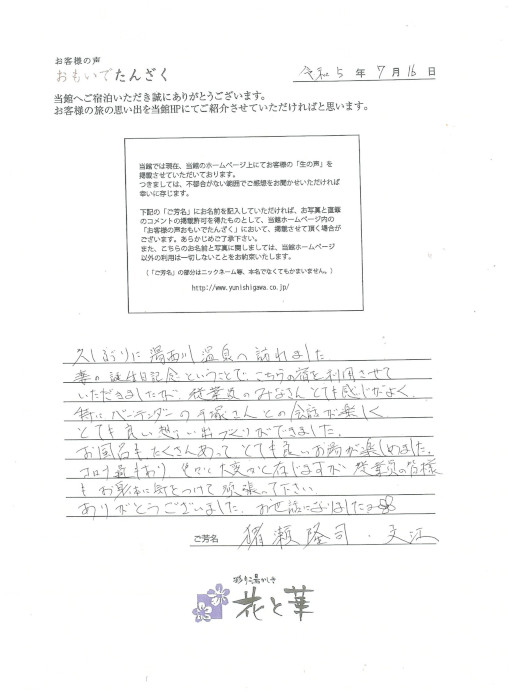 お客様の声
おもいでたんざく
令和 5 年 7 月 16 日
当館へご宿泊いただき誠にありがとうございます。
お客様の旅の思い出を当館HPにてご紹介させていただければと思います。
当館では現在、当館のホームページ上にてお客様の「生の声」を
掲載させていただいております。
つきましては、不都合がない範囲でご感想をお聞かせいただければ
幸いに存じます。
下記の「ご芳名」にお名前を記入していただければ、お写真と直筆
のコメントの掲載許可を得たものとして、当館ホームページ内の
「お客様の声おもいでたんざく」において、掲載させて頂く場合が
ございます。あらかじめご了承下さい。
また、こちらのお名前と写真に関しましては、当館ホームページ
以外の利用は一切しないことをお約束いたします。
(「ご芳名」の部分はニックネーム等、本名でなくてもかまいません。)
http://www.yunishigawa.co.jp/
久しぶりに湯西川温泉へ訪れました
妻の誕生日記念ということで、こちらの宿を利用させて
いただきましたが、従業員のみなさんとても感じがよく、
特にバーテンダーの手塚さんとの会話が楽しく
とても良い想い出づくりができました。
お風呂もたくさんあってとても良いお湯が楽しめました。
コロナ過もあり 色々大変かと存じますが 従業員の皆様
もお身体に気をつけて頑張って下さい
ありがとうございました。お世話になりました
ご芳名 猪瀬隆司・文江
彩り湯かしき
花と華